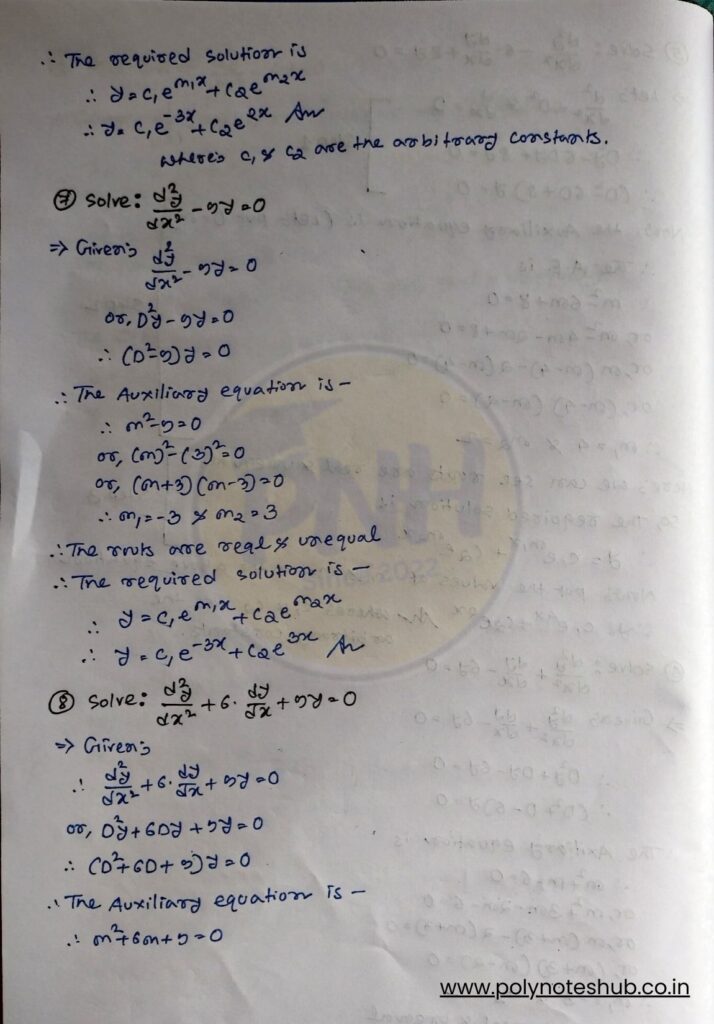 ∴ The required solution is
∴ y = c₁e^(m₁x) + c₂e^(m₂x)
∴ y = c₁e^(-3x) + c₂e^(2x) Ans
where, c₁ & c₂ are the arbitrary constants.
⑦ Solve: d²y/dx² - 9y = 0
⇒ Given,
d²y/dx² - 9y = 0
or, D²y - 9y = 0
∴ (D² - 9)y = 0
∴ The Auxiliary equation is -
∴ m² - 9 = 0
or, (m)² - (3)² = 0
or, (m+3)(m-3) = 0
∴ m₁ = -3 & m₂ = 3
∴ The roots are real & unequal
∴ The required solution is -
∴ y = c₁e^(m₁x) + c₂e^(m₂x)
∴ y = c₁e^(-3x) + c₂e^(3x) Ans
⑧ Solve: d²y/dx² + 6·dy/dx + 9y = 0
⇒ Given,
∴ d²y/dx² + 6·dy/dx + 9y = 0
or, D²y + 6Dy + 9y = 0
∴ (D² + 6D + 9)y = 0
∴ The Auxiliary equation is -
∴ m² + 6m + 9 = 0
PNH
Since 2022
www.polynoteshub.co.in